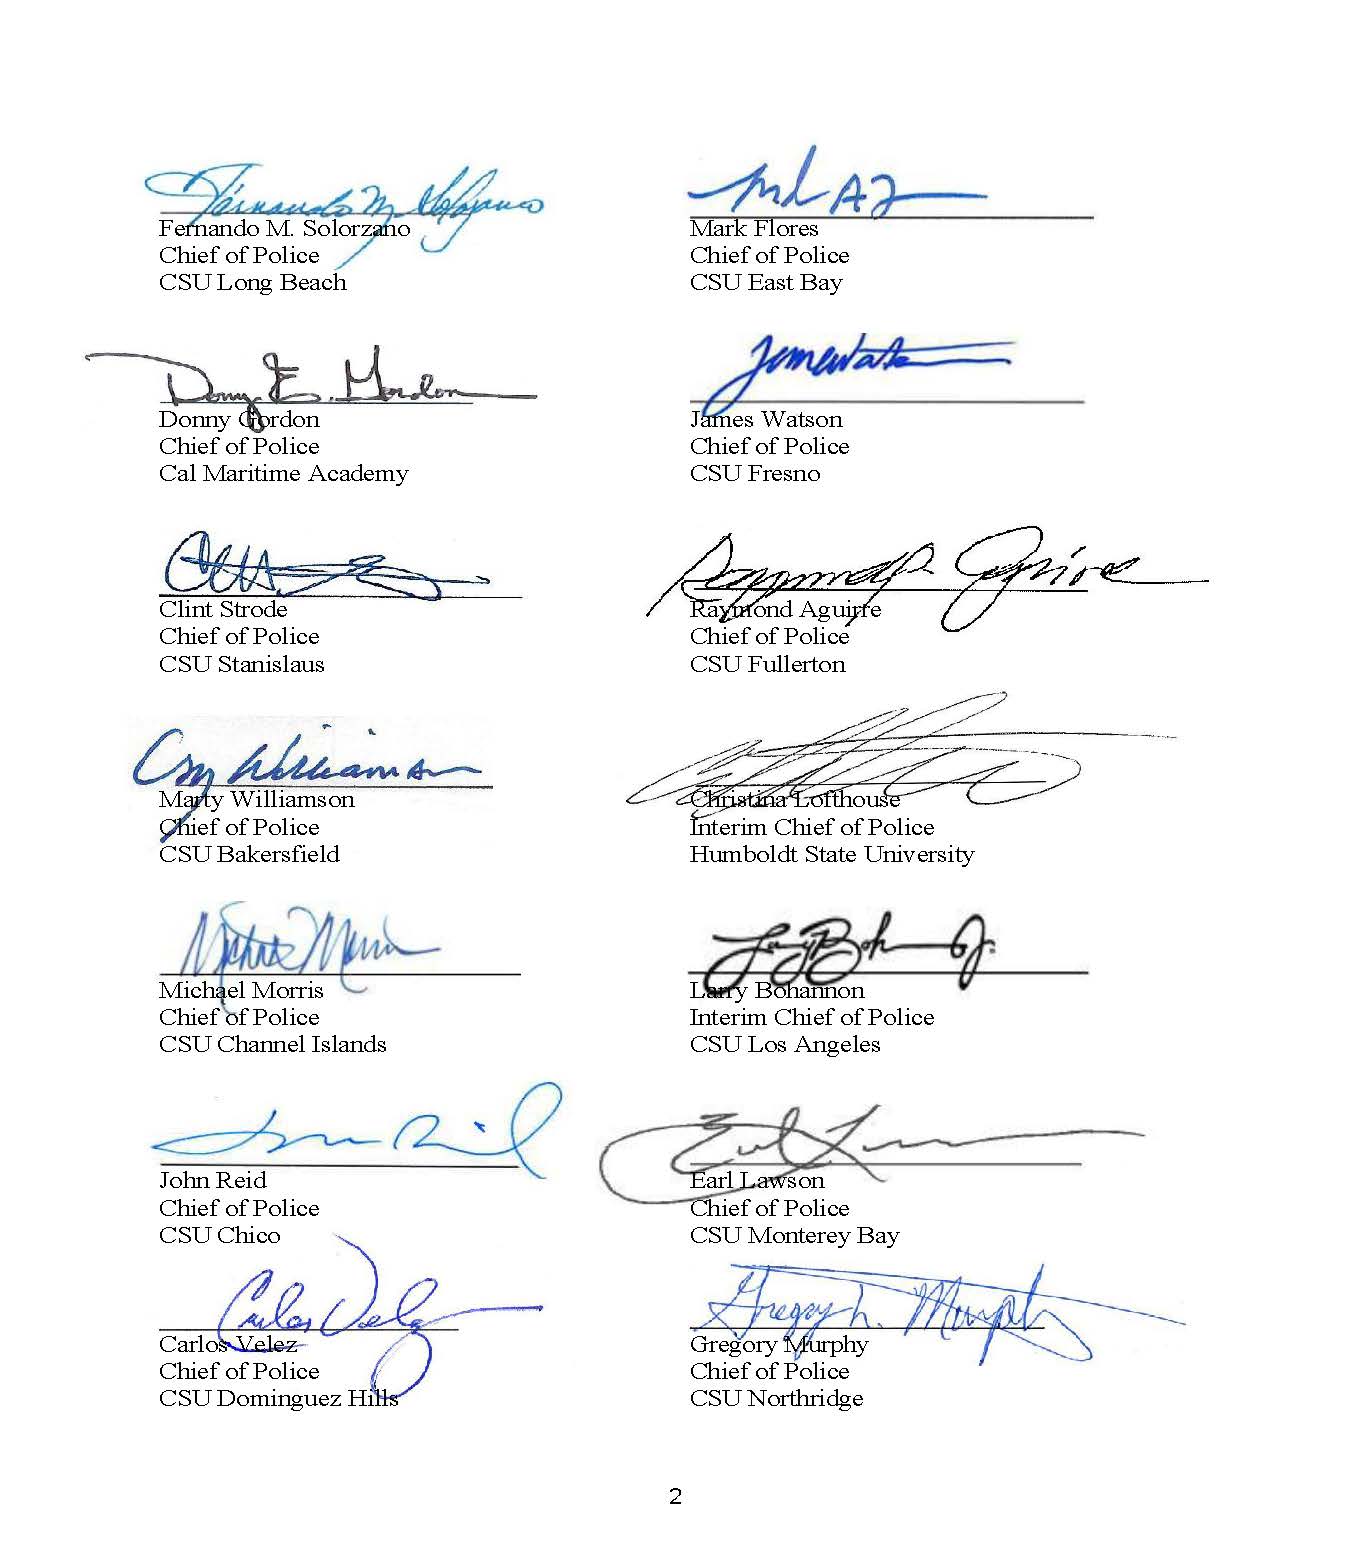 Fernando M. Solorzano
Fernando M. Solorzano
Chief of Police
CSU Long Beach
Mark Flores
Chief of Police
CSU East Bay
Donny E. Gordon
Donny Gordon
Chief of Police
Cal Maritime Academy
James Watson
Chief of Police
CSU Fresno
Clint Strode
Chief of Police
CSU Stanislaus
Raymond Aguirre
Chief of Police
CSU Fullerton
Williamson
Marty Williamson
Chief of Police
CSU Bakersfield
Christina Lofthouse
Interim Chief of Police
Humboldt State University
Michael Morris
Chief of Police
CSU Channel Islands
Larry Bohannon
Interim Chief of Police
CSU Los Angeles
John Reid
Chief of Police
CSU Chico
Earl Lawson
Chief of Police
CSU Monterey Bay
Carlos Velez
Carlos Velez
Chief of Police
CSU Dominguez Hills
Gregory L. Murphy
Gregory Murphy
Chief of Police
CSU Northridge
2